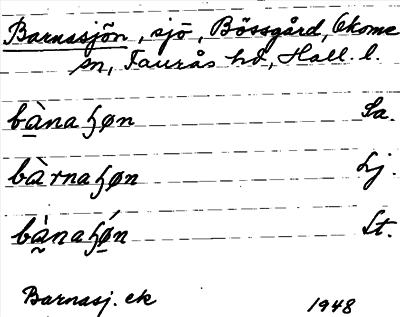 Barnasjön, sjö, Bössgård, Okome
sn, Faurås hd, Hall. l.
bànaɧøn Sa.
bàrnaɧøn Lj.
bànaɧǿn St.
Barnasj. ek 1948